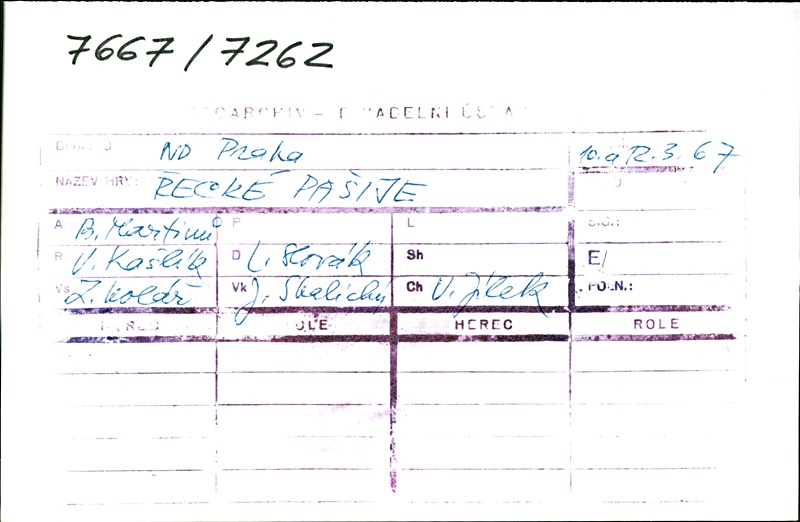 7667/7262
ND Praha 10. a 12. 3. 67
NÁZEV HRY: ŘECKÉ PAŠIJE
A B. Martinů P L
R V. Kašlík D L. Slovák Sh E/
Vs Z. Kolář Vk J. Skalický Ch V. Jílek POZN.:
HEREC ROLE HEREC ROLE